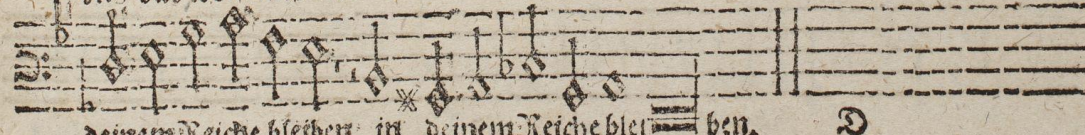 deinem Reiche bleiben in deinem Reiche blei ben.
D